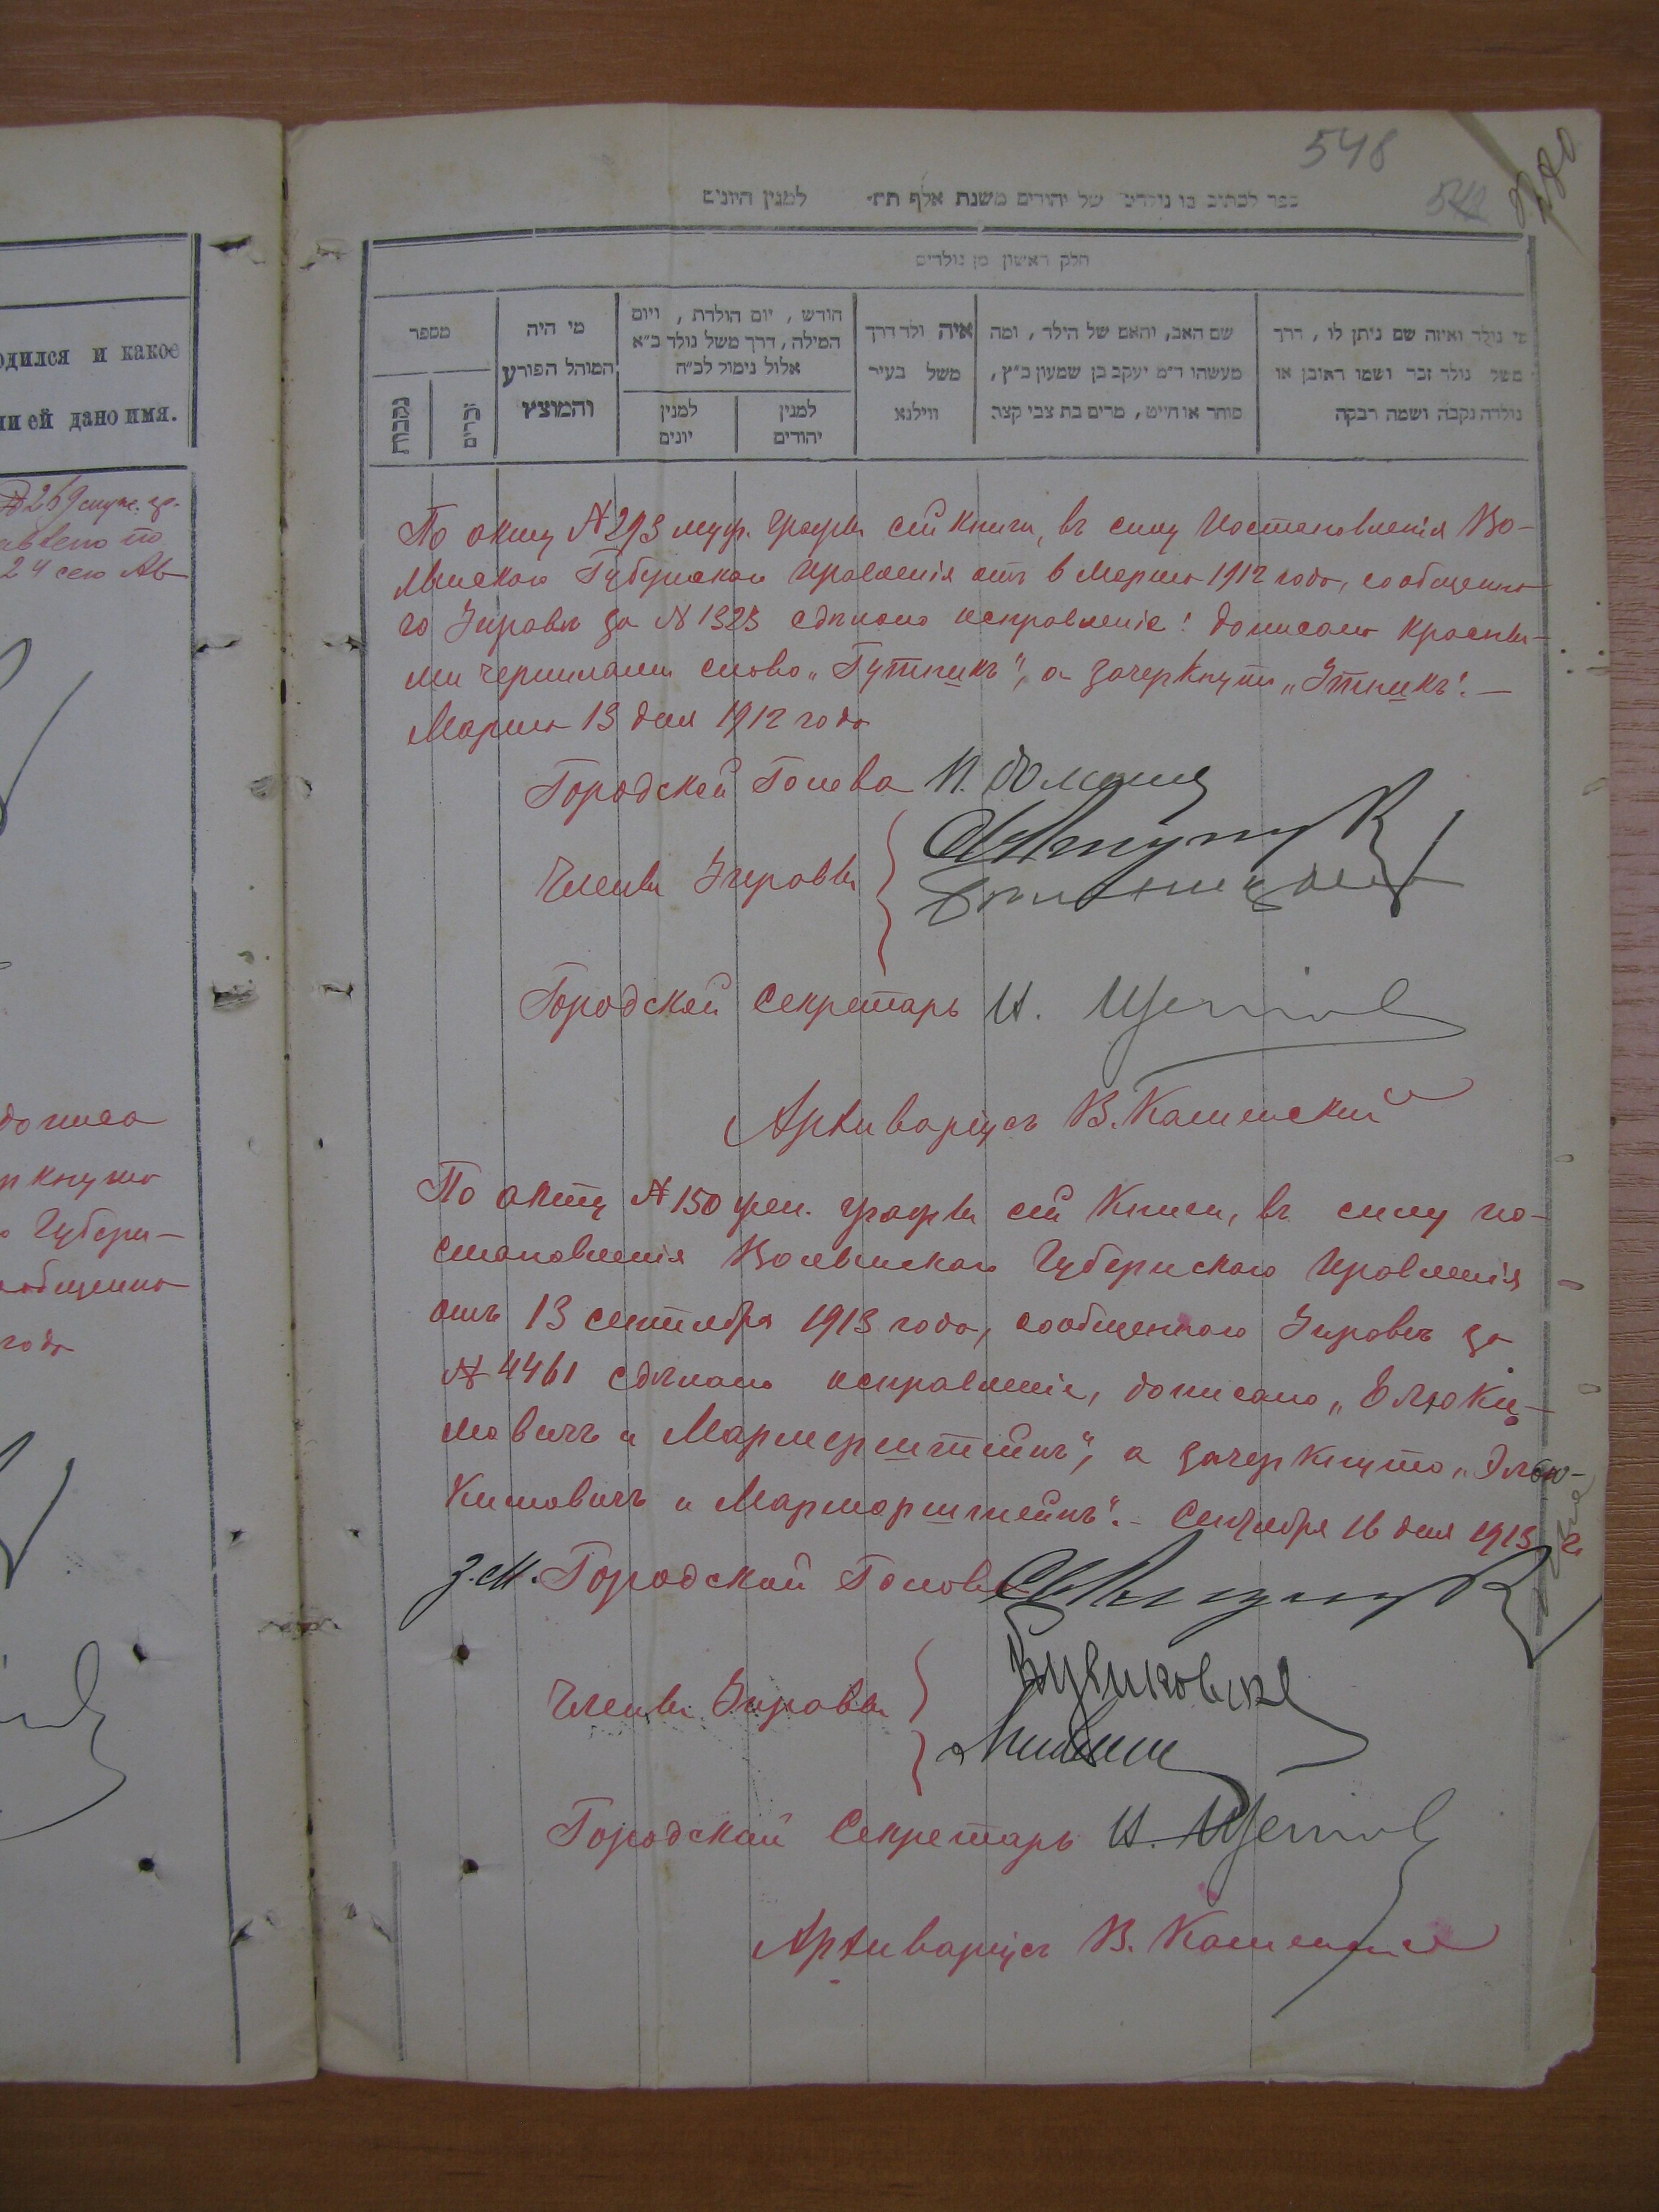 548
542
ספר לכתוב בו נולדים של יהודים משנת אלף תת׳ למנין היונים
חלק ראשון מן נולדים
מי נולד ואיזה שם ניתן לו, דרך
משל נולד זכר ושמו ראובן או
נולדה נקבה ושמה רבקה
שם האב, והאם של הילד, ומה
מעשהו ד״מ יעקב בן שמעון כ״ץ,
סוחר או חייט, מרים בת צבי קצב
איה ולד דרך
משל בעיר
ווילנא
חודש, יום הולדת, ויום
המילה, דרך משל נולד כ״א
אלול נימול לכ״ח
למנין
יהודים
למנין
יונים
מי היה
המוהל הפורע
והמוצץ
מספר
זכרים
נקבות
одился и какое
ли ей дано имя.
24 сего Ав
ркнуто
Губерн-
ообщенно
года
По акту № 293 муж. графы сей книги, въ силу Постановленія Во-
лынскаго Губернскаго Правленія отъ 6 Марта 1912 года, сообщенна-
го Управѣ за № 1323 сдѣлано исправленіе: дописано красны-
ми чернилами слово „Гутникъ", а зачеркнуто „Утникъ". —
Марта 13 дня 1912 года
Городской Голова
Члены Управы
Городской Секретарь И.
Архиваріусъ В. Каменскій
По акту № 150 жен. графы сей Книги, въ силу по-
становленія Волынскаго Губернскаго Правленія
отъ 13 сентября 1913 года, сообщеннаго Управѣ за
№ 4461 сдѣлано исправленіе, дописано „Элюки-
мовичъ и Мармерштейнъ", а зачеркнуто „Элью-
кимовичъ и Марморштейнъ". - Сентября 16 дня 1913 г.
З. М. Городской Голова
Члены Управы
Городской Секретарь И.
Архиваріусъ В. Каменскій